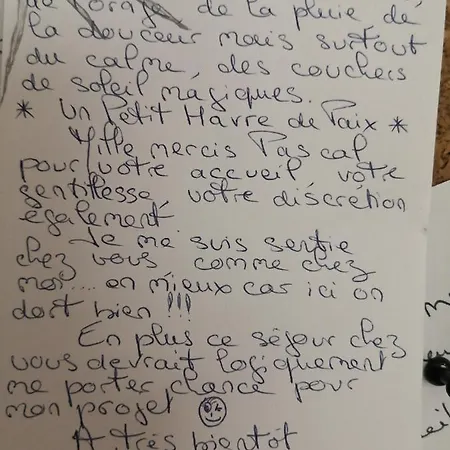 de l'orage, de la pluie, de
la douceur mais surtout
du calme, des couchers
de soleil magiques.
* Un Petit Havre de Paix *
Mille mercis Pascal
pour votre accueil, votre
gentillesse, votre discrétion
également.
Je me suis sentie
chez vous comme chez
moi.... en mieux car ici on
dort bien !!!
En plus ce séjour chez
vous devrait logiquement
me porter chance pour
mon projet
A très bientôt